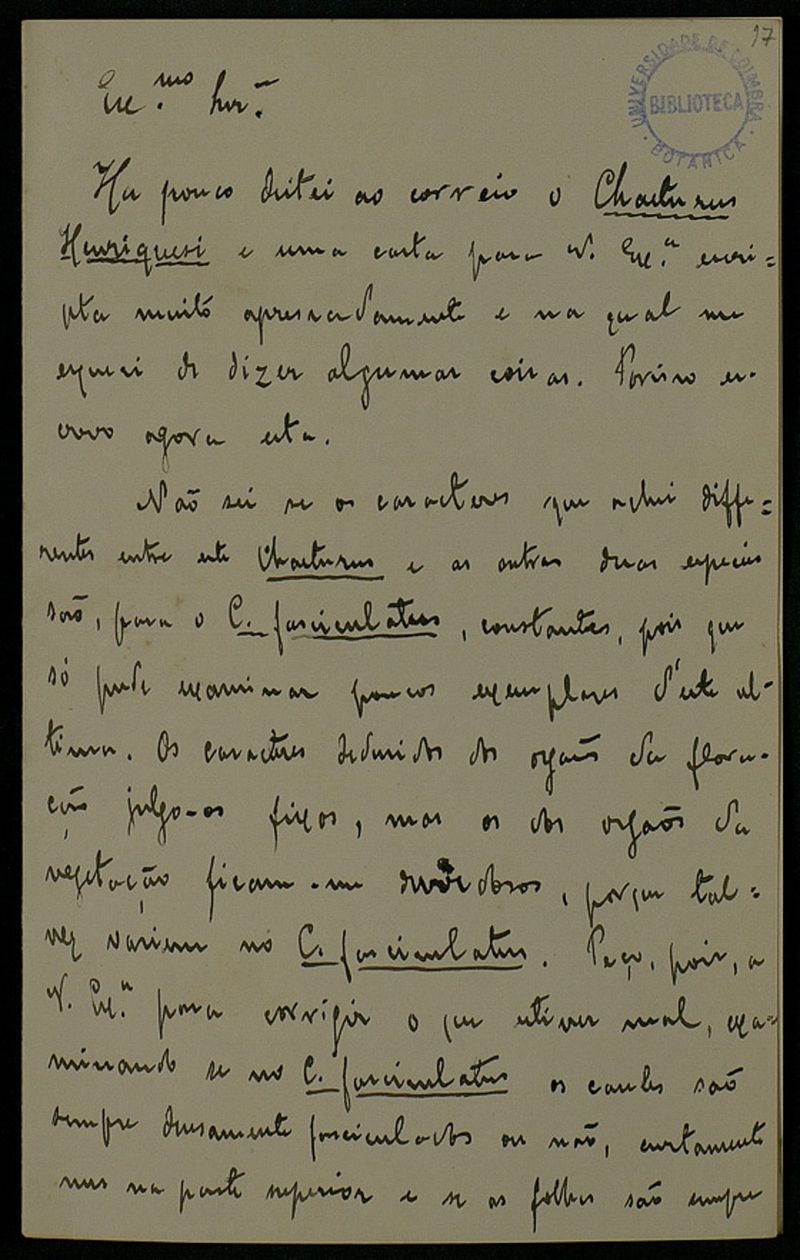 97
UNIVERSIDADE DE COIMBRA
BIBLIOTECA
BOTANICA
Ex.mo Snr.
Ha pouco deitei ao correio o Chaeturus
Henriquesi e uma carta para V. Ex.a escri=
pta muito apressadamente e na qual me
esqueci de dizer algumas coisas. Porisso es-
crevo agora esta.
Não sei se os caracteres que achei diffe=
rentes entre este Chaeturus e as outras duas especies
são, para o C. fasciculatus, constantes, pois que
só pude examinar poucos exemplares d'este ul-
timo. Os caracteres deduzidos dos orgãos da flora-
ção julgo-os fixos, mas os dos orgãos da
vegetação ficam-me duvidosos, porque tal=
vez variem no C. fasciculatus. Peço, pois, a
V. Ex.a para corrigir o que estiver mal, exa=
minando se no C. fasciculatus os caules são
sempre densamente fasciculados ou não, curtamente
nus na parte superior e se as folhas são sempre